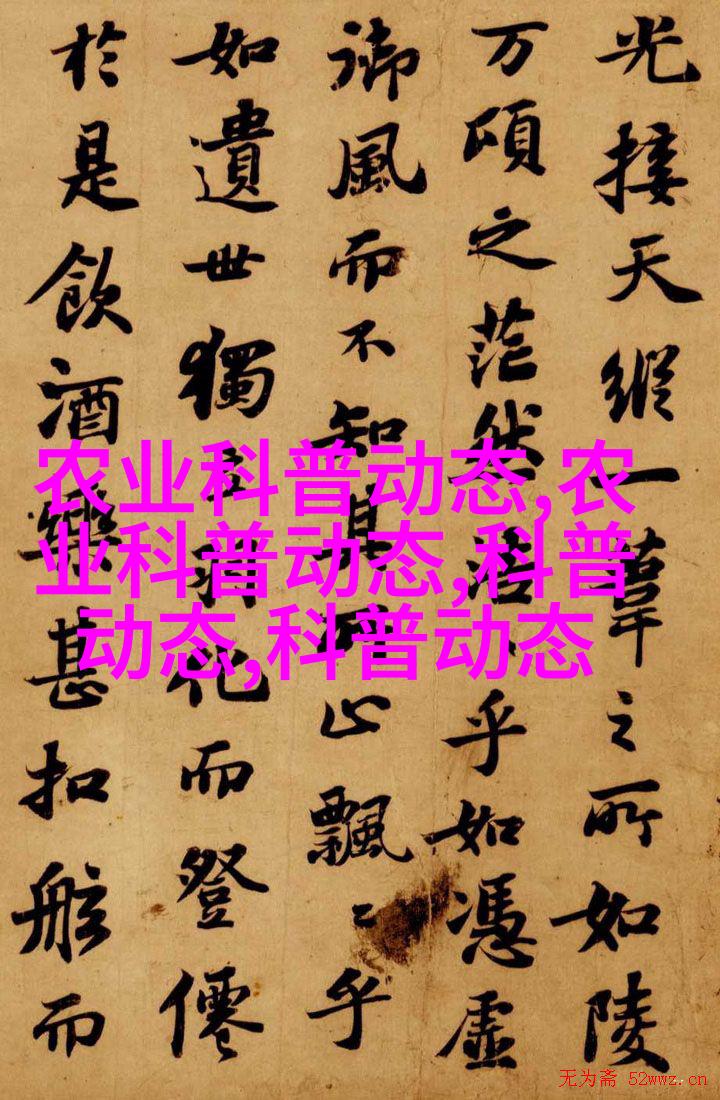 光接天縱一葦之所如陵
万頃之茫然浩〻乎如憑虛
御風而不知其所止飄〻乎
如遺世獨立羽化而登僊
於是飲酒樂甚扣舷而
农业科普动态,农
业科普动态,科普
动态,科普动态
无为斋 52wwz.cn